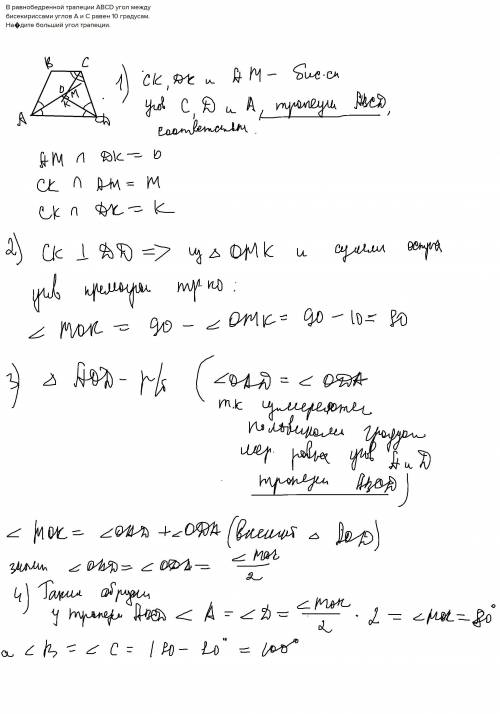 В равнобедренной трапеции ABCD угол между
бисекириссами углов А и С равен 10 градусам.
На�дите больший угол трапеции.
B C
O M
K
A D
1) CK, DK и AM – бис-сы
углов C, D и A, трапеции ABCD,
соответствен.
AM ∩ DK = O
CK ∩ AM = M
CK ∩ DK = K
2) CK ⊥ DO => из △ OMK и суммы острых
∠ MOK = 90 – ∠ OMK = 90 – 10 = 80
3) △ AOD – р/б (∠OAD = ∠ ODA
тк измеряются
половинами градусн
мер. равных углов A и D
трапеции ABCD)
∠ MOK = ∠OAD + ∠ODA (внешний △ AOD)
значит ∠OAD = ∠ODA = ∠MOK / 2
4) Таким образом
у трапеции ABCD ∠ A = ∠ D = ∠MOK / 2 · 2 = ∠MOK = 80°
а ∠ B = ∠ C = 180 – 80° = 100°